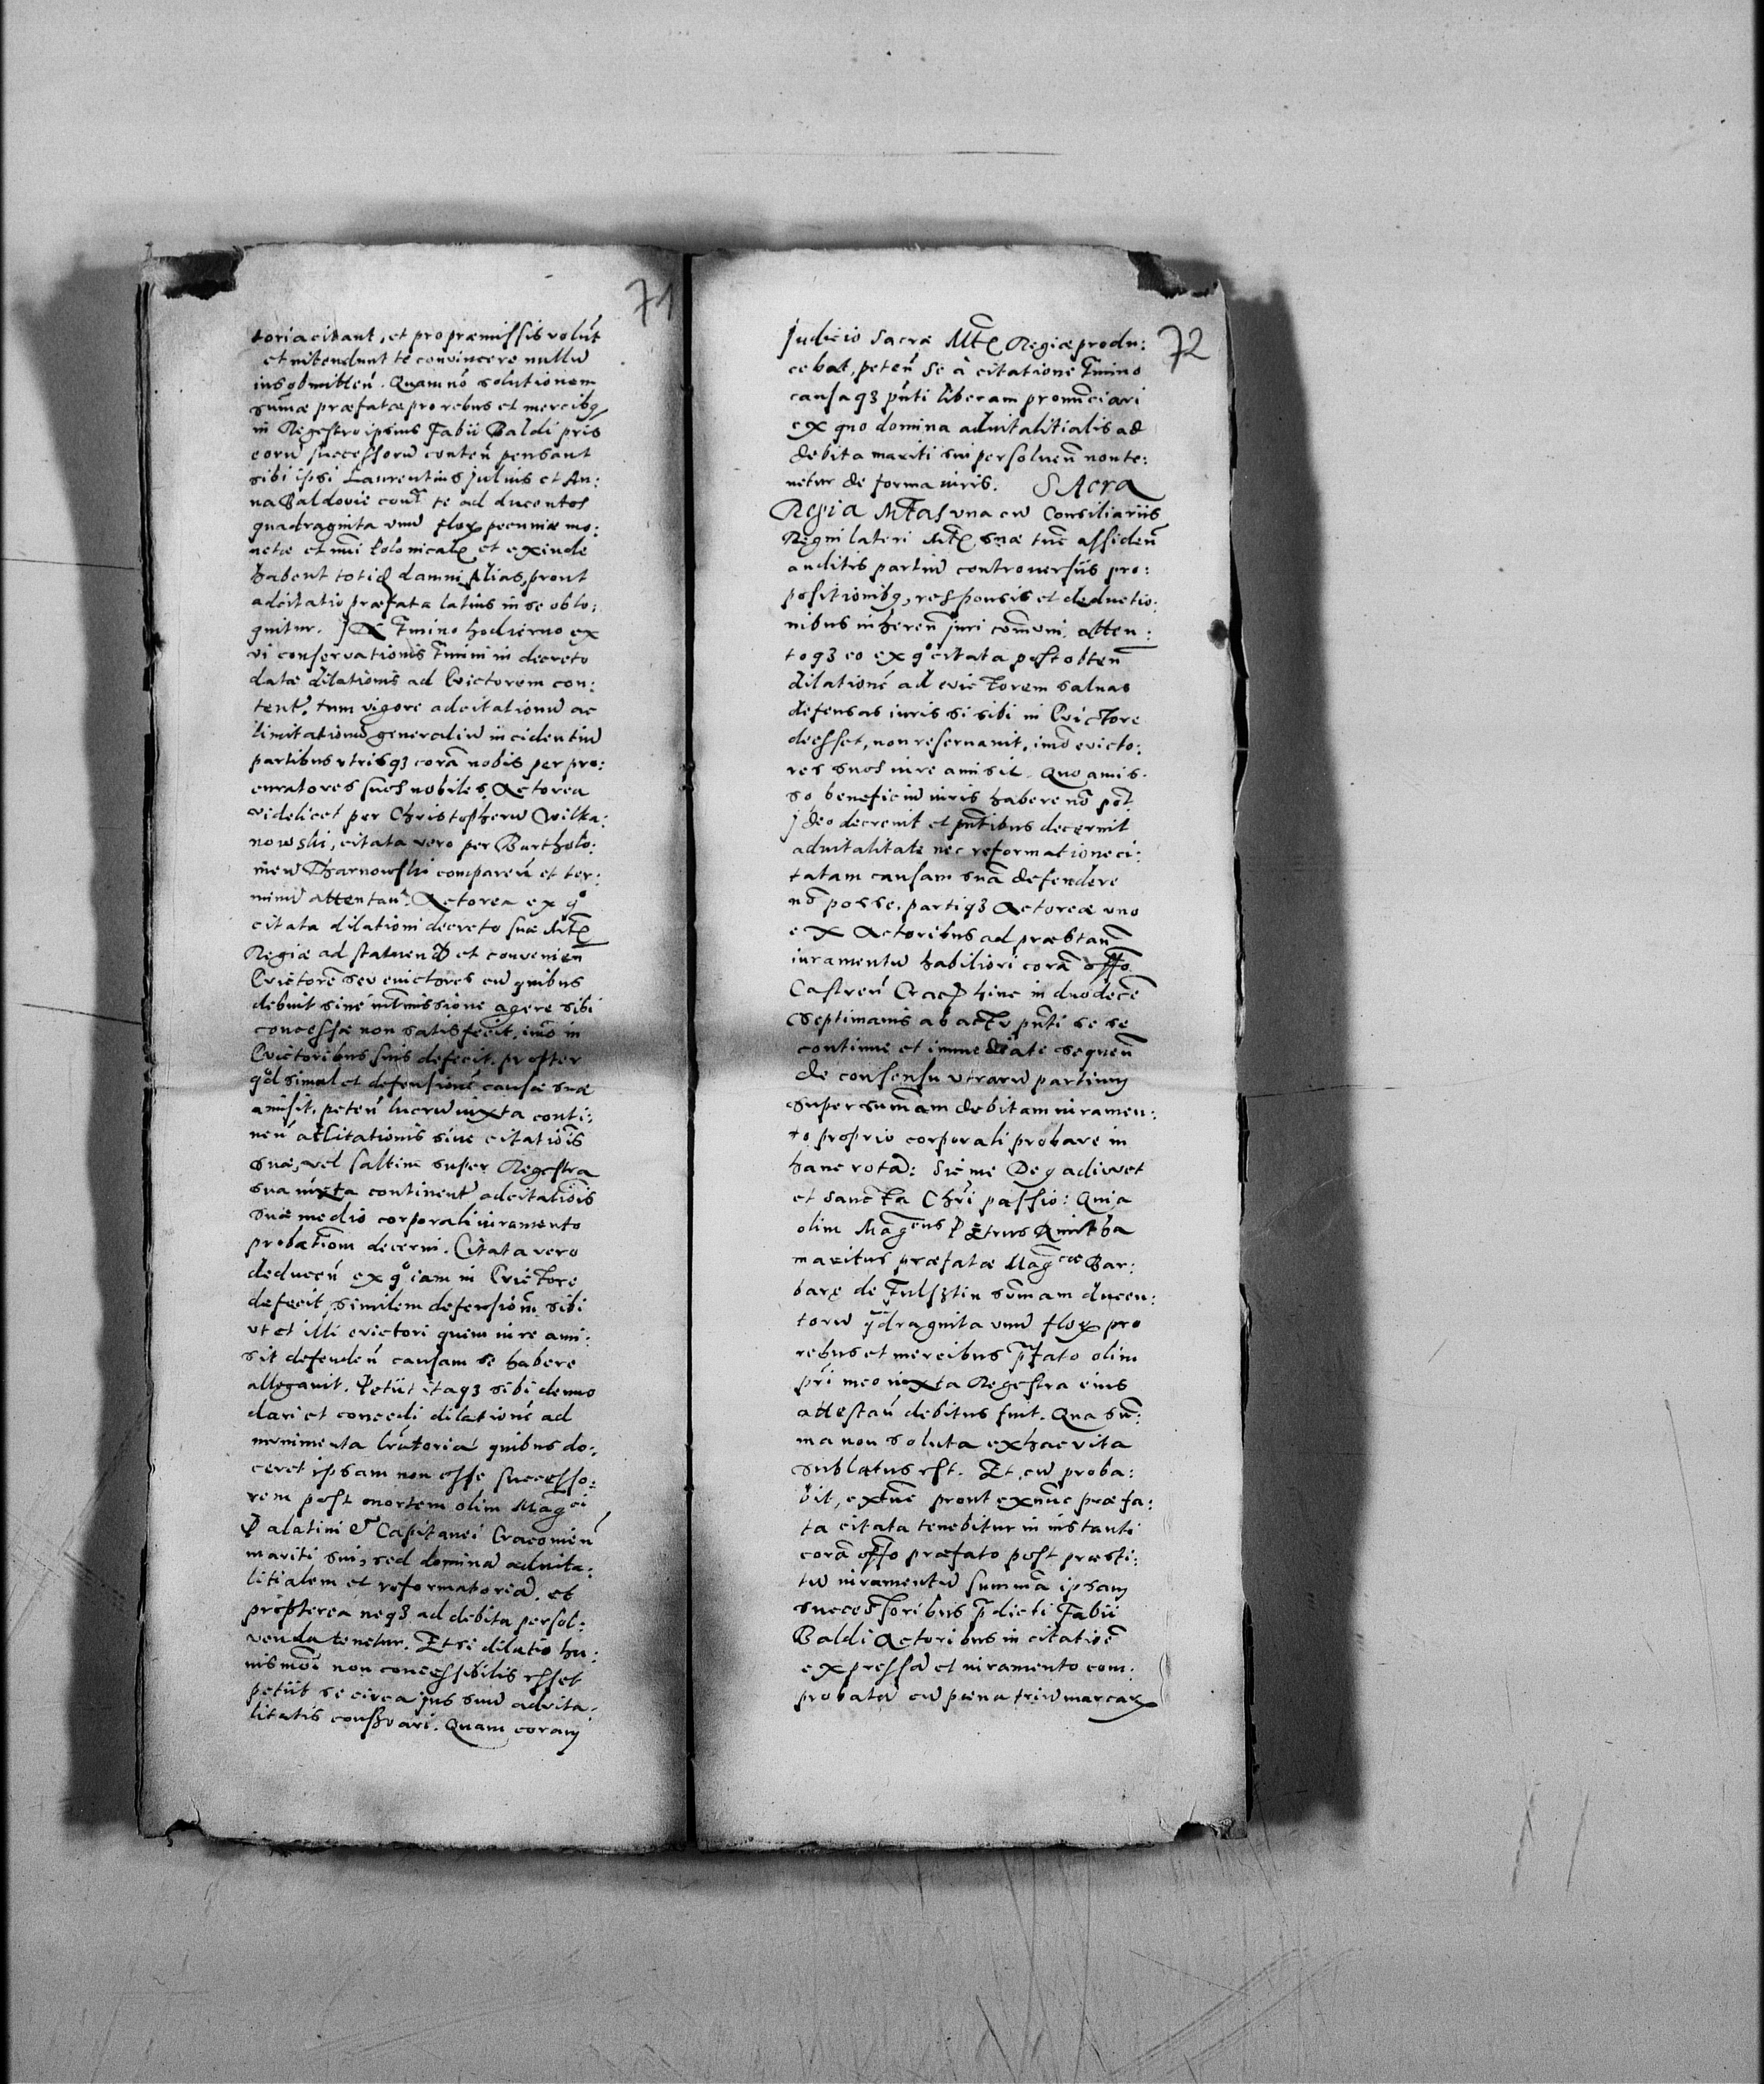 71
toria citant, et pro præmissis volūt
et nitendunt te convincere nullū
ius obmitteñ. Quam nō solutionem
sum̄æ præfatæ pro rebus et mercibq
in Regestro ipsius Fabii Baldi pris
eorū successorū conteñ pensant
sibi ipsi Laurentius Julius et An:
na Baldovie cont̃ te ad ducentos
quadraginta vnū flox pecuniæ mo:
netæ et nūi Polonicalę et exinde
habent totiđ damni p̱ alias, prout
adcitatio præfata latius in se oblo:
quitur. In T̃mino hodierno ex
vi conservationis T̃mini in decreto
datæ dilationis ad Evictorem con:
tent̃, tum vigore adcitationū ac
limitationū generaliū incidentiū
partibus vtrisqȝ corā nobis per pro:
curatores suos nobiles. Actorea
videlicet per Christopherū Wilka:
nowski, citata vero per Bartholo:
meū Tharnowski compareñ et ter:
minū attentañ. Actorea ex qº
citata dilationi decreto suæ Mtę
Regiæ ad statuend et convenieñ
Evictorē seu evictores cū quibus
debuit sine int̃missione agere sibi
concessæ non satisfecit, imo in
Evictoribus suis defecit. propter
qd simul et defensionē causæ suæ
amisit. peteñ lucrū iuxta conti:
neñ adcitationis siue citationis
suæ, vel saltim super Regestra
sua iuxta continent̃ adcitationis
suæ medio corporali iuramento
probatiom decerni. Citata vero
deduceñ ex qº iam in Evictore
defecit, similem defensiom̄ sibi
vt et illi evictori quem iure ami:
sit defendeñ causam se habere
allegavit. Petiit itaqȝ sibi denuo
dari et concedi dilationē ad
munimenta lr̃atoria quibus do:
ceret ipsam non esse successo:
rem post mortem olim Magci
Palatini et Capitanei Cracovieñ
mariti sui, sed dominā advita:
litialem et reformatoriā. et
propterea neqȝ ad debita persol:
venda tenetur. Et si dilatio hu:
iusmōi non concessibilis esset
petiit se circa jus suū advita:
litatis consȝvari. Quam coram
72
Judicio Sacræ Mtę Regiæ produ:
cebat, peteñ se à citatione T̃mino
causaqȝ pñti liberam pronūciari
ex quo domina advitalitialis ad
debita mariti sui persolueñ non te:
netur de forma iuris. SAcra
Regia Mtas vna cū Consiliariis
Regni lateri Mtę suæ tūc assideñ
auditis partiū controversiis pro:
positionibq, responsis et deductio:
nibus inhereñ juri com̄uni, atten:
toqȝ eo ex qº citata post obteñ
dilationē ad evictorem saluas
defensas iuris si sibi in Evictore
deesset, non reservavit, imo evicto:
res suos iure amisit. Quo amis:
so beneficiū iuris habere nō pōt
Ideo decrevit et pñtibus decernit
advitalitate nec reformatione ci:
tatam causam suā defendere
nō posse. partiqȝ Actoreæ uno
ex Actoribus ad præstañ
iuramentū habiliori corā offo
Castreñ Crac hinc in duodecē
septimanis ab actu pñti se se
continue et immediate sequeñ
de consensu vtrarū partium
super sum̄am debitam iuramen:
to proprio corporali probare in
hanc rotā: Sic me Deq adiuvet
et sancta Chri passio: Quia
olim Magcus Petrus Kmitha
maritus præfatæ Magcæ Bar:
baræ de Fulsztin sum̄am ducen:
torū q̃draginta vnū flox pro
rebus et mercibus p̃fato olim
pri meo iuxta Regestra eius
attestañ debitus fuit. Qua sum̄:
ma non soluta ex hac vita
sublatus est. Et cū proba:
bit, extūc prout exnūc præfa:
ta citata tenebitur in instanti
corā offo præfato post præsti:
tū iuramentū summā ipsam
successoribus p̃dicti Fabii
Baldi Actoribus in citatioē
expressā et iuramento com:
probatā cū pœna triū marcax